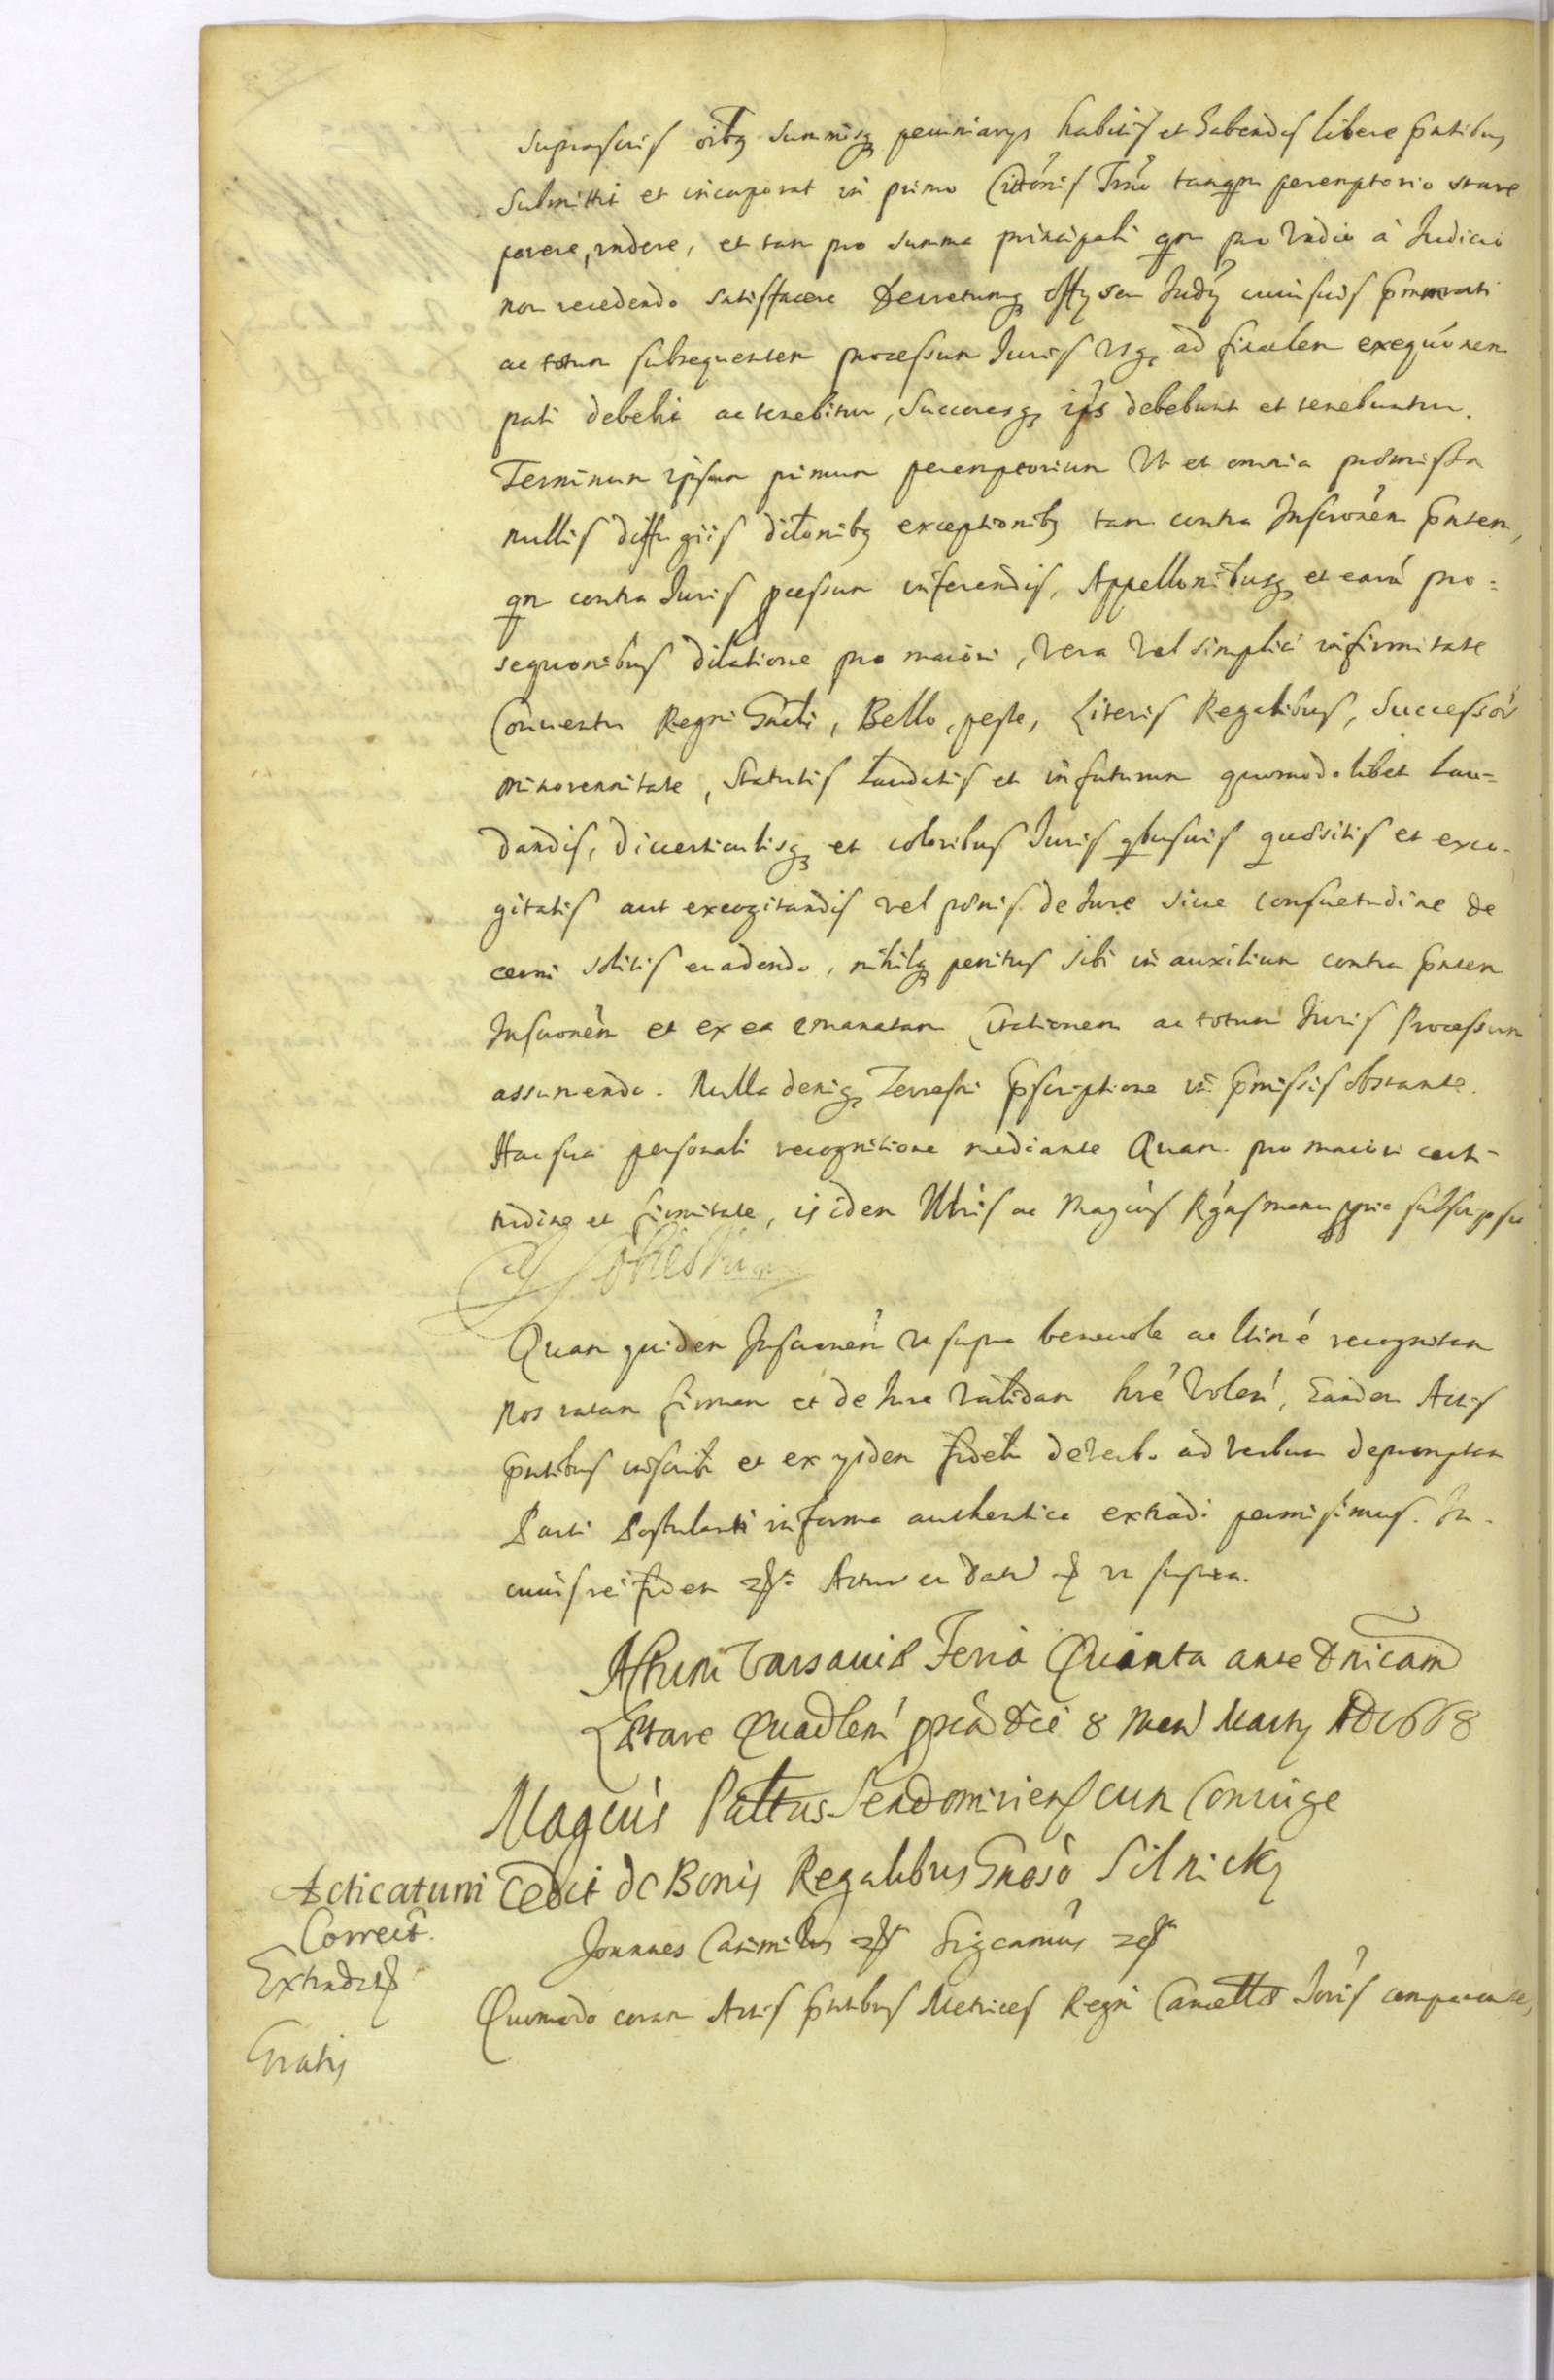 suprascris oibz summisqz pecuniarys habitis et habendis libere pntibus
submittit et incorporat in primo Cittonis Trno tanqm peremptorio stare
parere, rndere, et tam pro summa principali qm pro vadio à Judicio
non recedendo satisfacere Decretumqz offy seu Judy cuiusuis
ac totum subsequentem processum Juris usqz ad finalem exequonem
pati debebit ac tenebitur, Succoresqz ips debebunt et tenebuntur.
Terminum ipsum primum peremptorium Ut et omnia præmissa
nullis diffugiis dilonibz exceptionibz tam contra Inscronem pntem,
qm contra Juris pcessum inferendis, Appellonibusqz et earu pro=
sequonibus dilatione pro maiori, vera vel simplici infirmitate
Conuentu Regni Gnali, Bello, peste, Literis Regalibus, Successor
minorennitate, Statutis laudatis et in futurum quomodolibet lau=
dandis, diuerticulisqz et coloribus Juris qbusuis quæsitis et exco-
gitatis aut excogitandis vel poni de Jure siue consuetudine de
cerni solitis euadendo, nihilqz penitus sibi in auxilium contra pntem
Inscronem et ex ea emanatam Citationem ac totum Juris Processum
assumendo. Nulla deniqz Terrestri pscriptione in pmissis obstante.
Hac sua personali recognitione mediante Quam pro maiori certi-
tudine et firmitate, is idem Illris ac Magcus Rgns manu ppria subscripsit
Sobieski
Quam quidem Inscronem ut supra beneuole ac ltime recognitam
Nos ratam firmam et de Jure validam hre Volen, Eandem Actis
pntibus inscribi et ex ysdem fideli de verbo ad verbum depromptam
Parti Postulanti in forma authentica extradi permisimus. In
cuius rei fidem etc. Actum et dat ut supra.
Actum Varsauiæ Feria Quinta ante Dnicam
Lætare Quadlem pria die 8 Men Marty AD 1668
Magcus Palttus Sendomiriens cum Coniuge
Cedit de Bonis Regalibus Gnoso Silnicky
Acticatum
Correct.
Extradit
Gratis
Joannes Casimirus etc Sigcamus etc
Quomodo coram Actis pntibus Metrices Regni Cancellæ Joris comparentes,